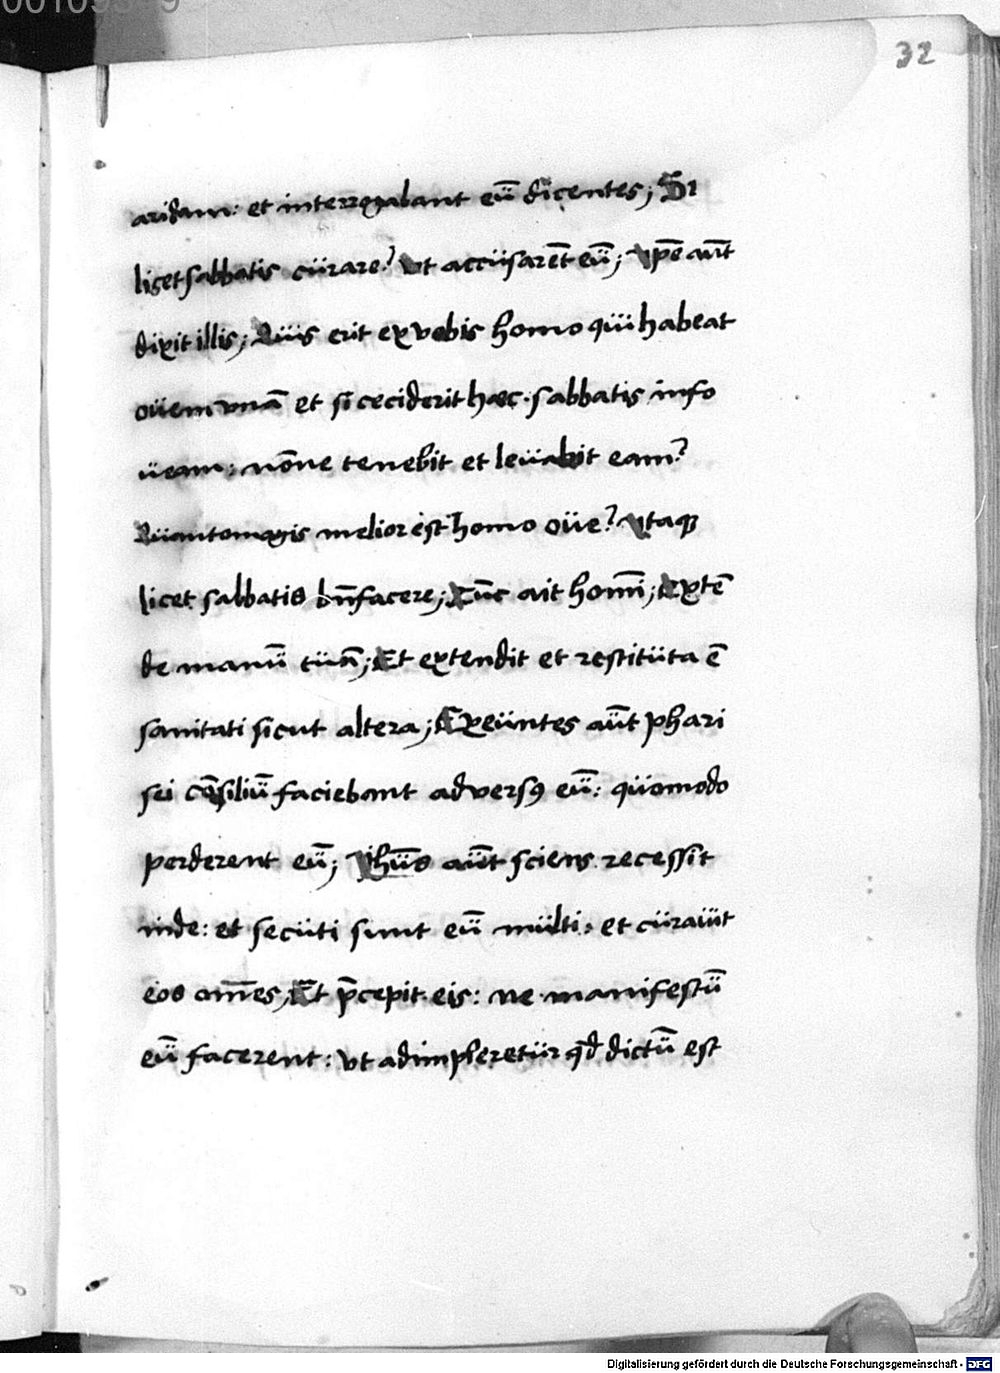 32
aridam: et interrogabant eū dicentes; Si
licet sabbatis cürare? Vt accüsarēt eū; Ipē aūt
dixit illis; Qüis erit ex vobis homo qüi habeat
oüem vnā et si ceciderit haec sabbatis in fo
üeam: nōne tenebit et leüabit eam?
Qüanto magis melior est homo oüe? Itaqꝫ
licet sabbatis bn̄facere; Tūc ait homī; Extē
de manū tüā; Et extendit et restitüta ē
sanitati sicut altera; Exeüntes aūt phari
sei cōsiliū faciebant adversꝰ eū: qüomodo
perderent eū; Ihūs aūt sciens recessit
inde: et secüti sunt eū mülti: et cüraüit
eos om̄es; Et p̄cepit eis: ne manifestū
eū facerent: Vt adimpleretür qd̄ dictū est
Digitalisierung gefördert durch die Deutsche Forschungsgemeinschaft - DFG